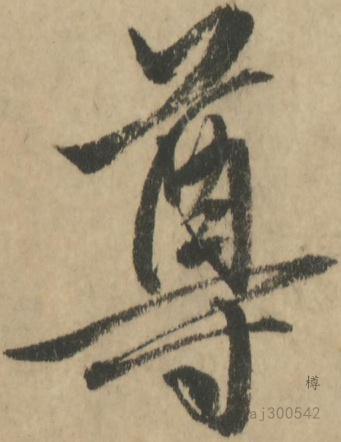 尊
樽
aj300542